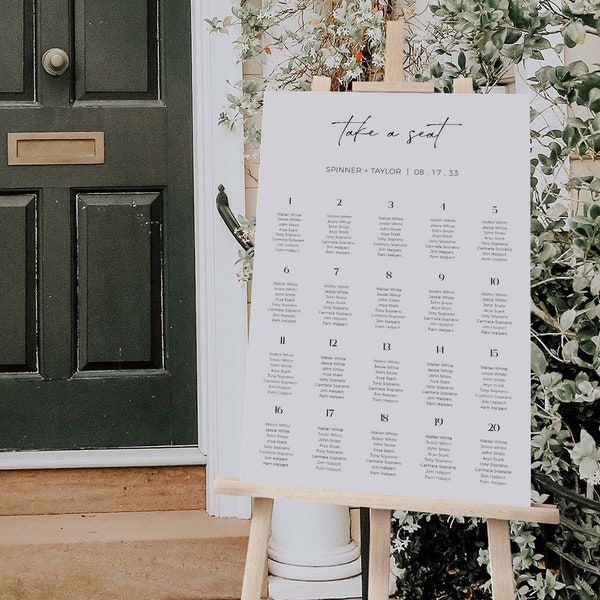 take a seat
SPINNER + TAYLOR | 08 . 17 . 33
1
Walter White
Jessie White
John Snow
Arya Stark
Tony Soprano
Carmela Soprano
Jim Halpert
2
Walter White
Jessie White
John Snow
Arya Stark
Tony Soprano
Carmela Soprano
Jim Halpert
3
Walter White
Jessie White
John Snow
Arya Stark
Tony Soprano
Carmela Soprano
Jim Halpert
4
Walter White
Jessie White
John Snow
Arya Stark
Tony Soprano
Carmela Soprano
Jim Halpert
5
Walter White
Jessie White
John Snow
Arya Stark
Tony Soprano
Carmela Soprano
Jim Halpert
6
Walter White
Jessie White
John Snow
Arya Stark
Tony Soprano
Carmela Soprano
Jim Halpert
7
Walter White
Jessie White
John Snow
Arya Stark
Tony Soprano
Carmela Soprano
Jim Halpert
8
Walter White
Jessie White
John Snow
Arya Stark
Tony Soprano
Carmela Soprano
Jim Halpert
9
Walter White
Jessie White
John Snow
Arya Stark
Tony Soprano
Carmela Soprano
Jim Halpert
10
Walter White
Jessie White
John Snow
Arya Stark
Tony Soprano
Carmela Soprano
Jim Halpert
11
Walter White
Jessie White
John Snow
Arya Stark
Tony Soprano
Carmela Soprano
Jim Halpert
Pam Halpert
12
Walter White
Jessie White
John Snow
Arya Stark
Tony Soprano
Carmela Soprano
Jim Halpert
Pam Halpert
13
Walter White
Jessie White
John Snow
Arya Stark
Tony Soprano
Carmela Soprano
Jim Halpert
Pam Halpert
14
Walter White
Jessie White
John Snow
Arya Stark
Tony Soprano
Carmela Soprano
Jim Halpert
Pam Halpert
15
Walter White
Jessie White
John Snow
Arya Stark
Tony Soprano
Carmela Soprano
Jim Halpert
Pam Halpert
16
Walter White
Jessie White
John Snow
Arya Stark
Carmela Soprano
Jim Halpert
Pam Halpert
17
Walter White
Jessie White
John Snow
Arya Stark
Carmela Soprano
Jim Halpert
Pam Halpert
18
Walter White
Jessie White
John Snow
Arya Stark
Carmela Soprano
Jim Halpert
Pam Halpert
19
Walter White
Jessie White
John Snow
Arya Stark
Carmela Soprano
Jim Halpert
Pam Halpert
20
Walter White
Jessie White
John Snow
Arya Stark
Carmela Soprano
Jim Halpert
Pam Halpert